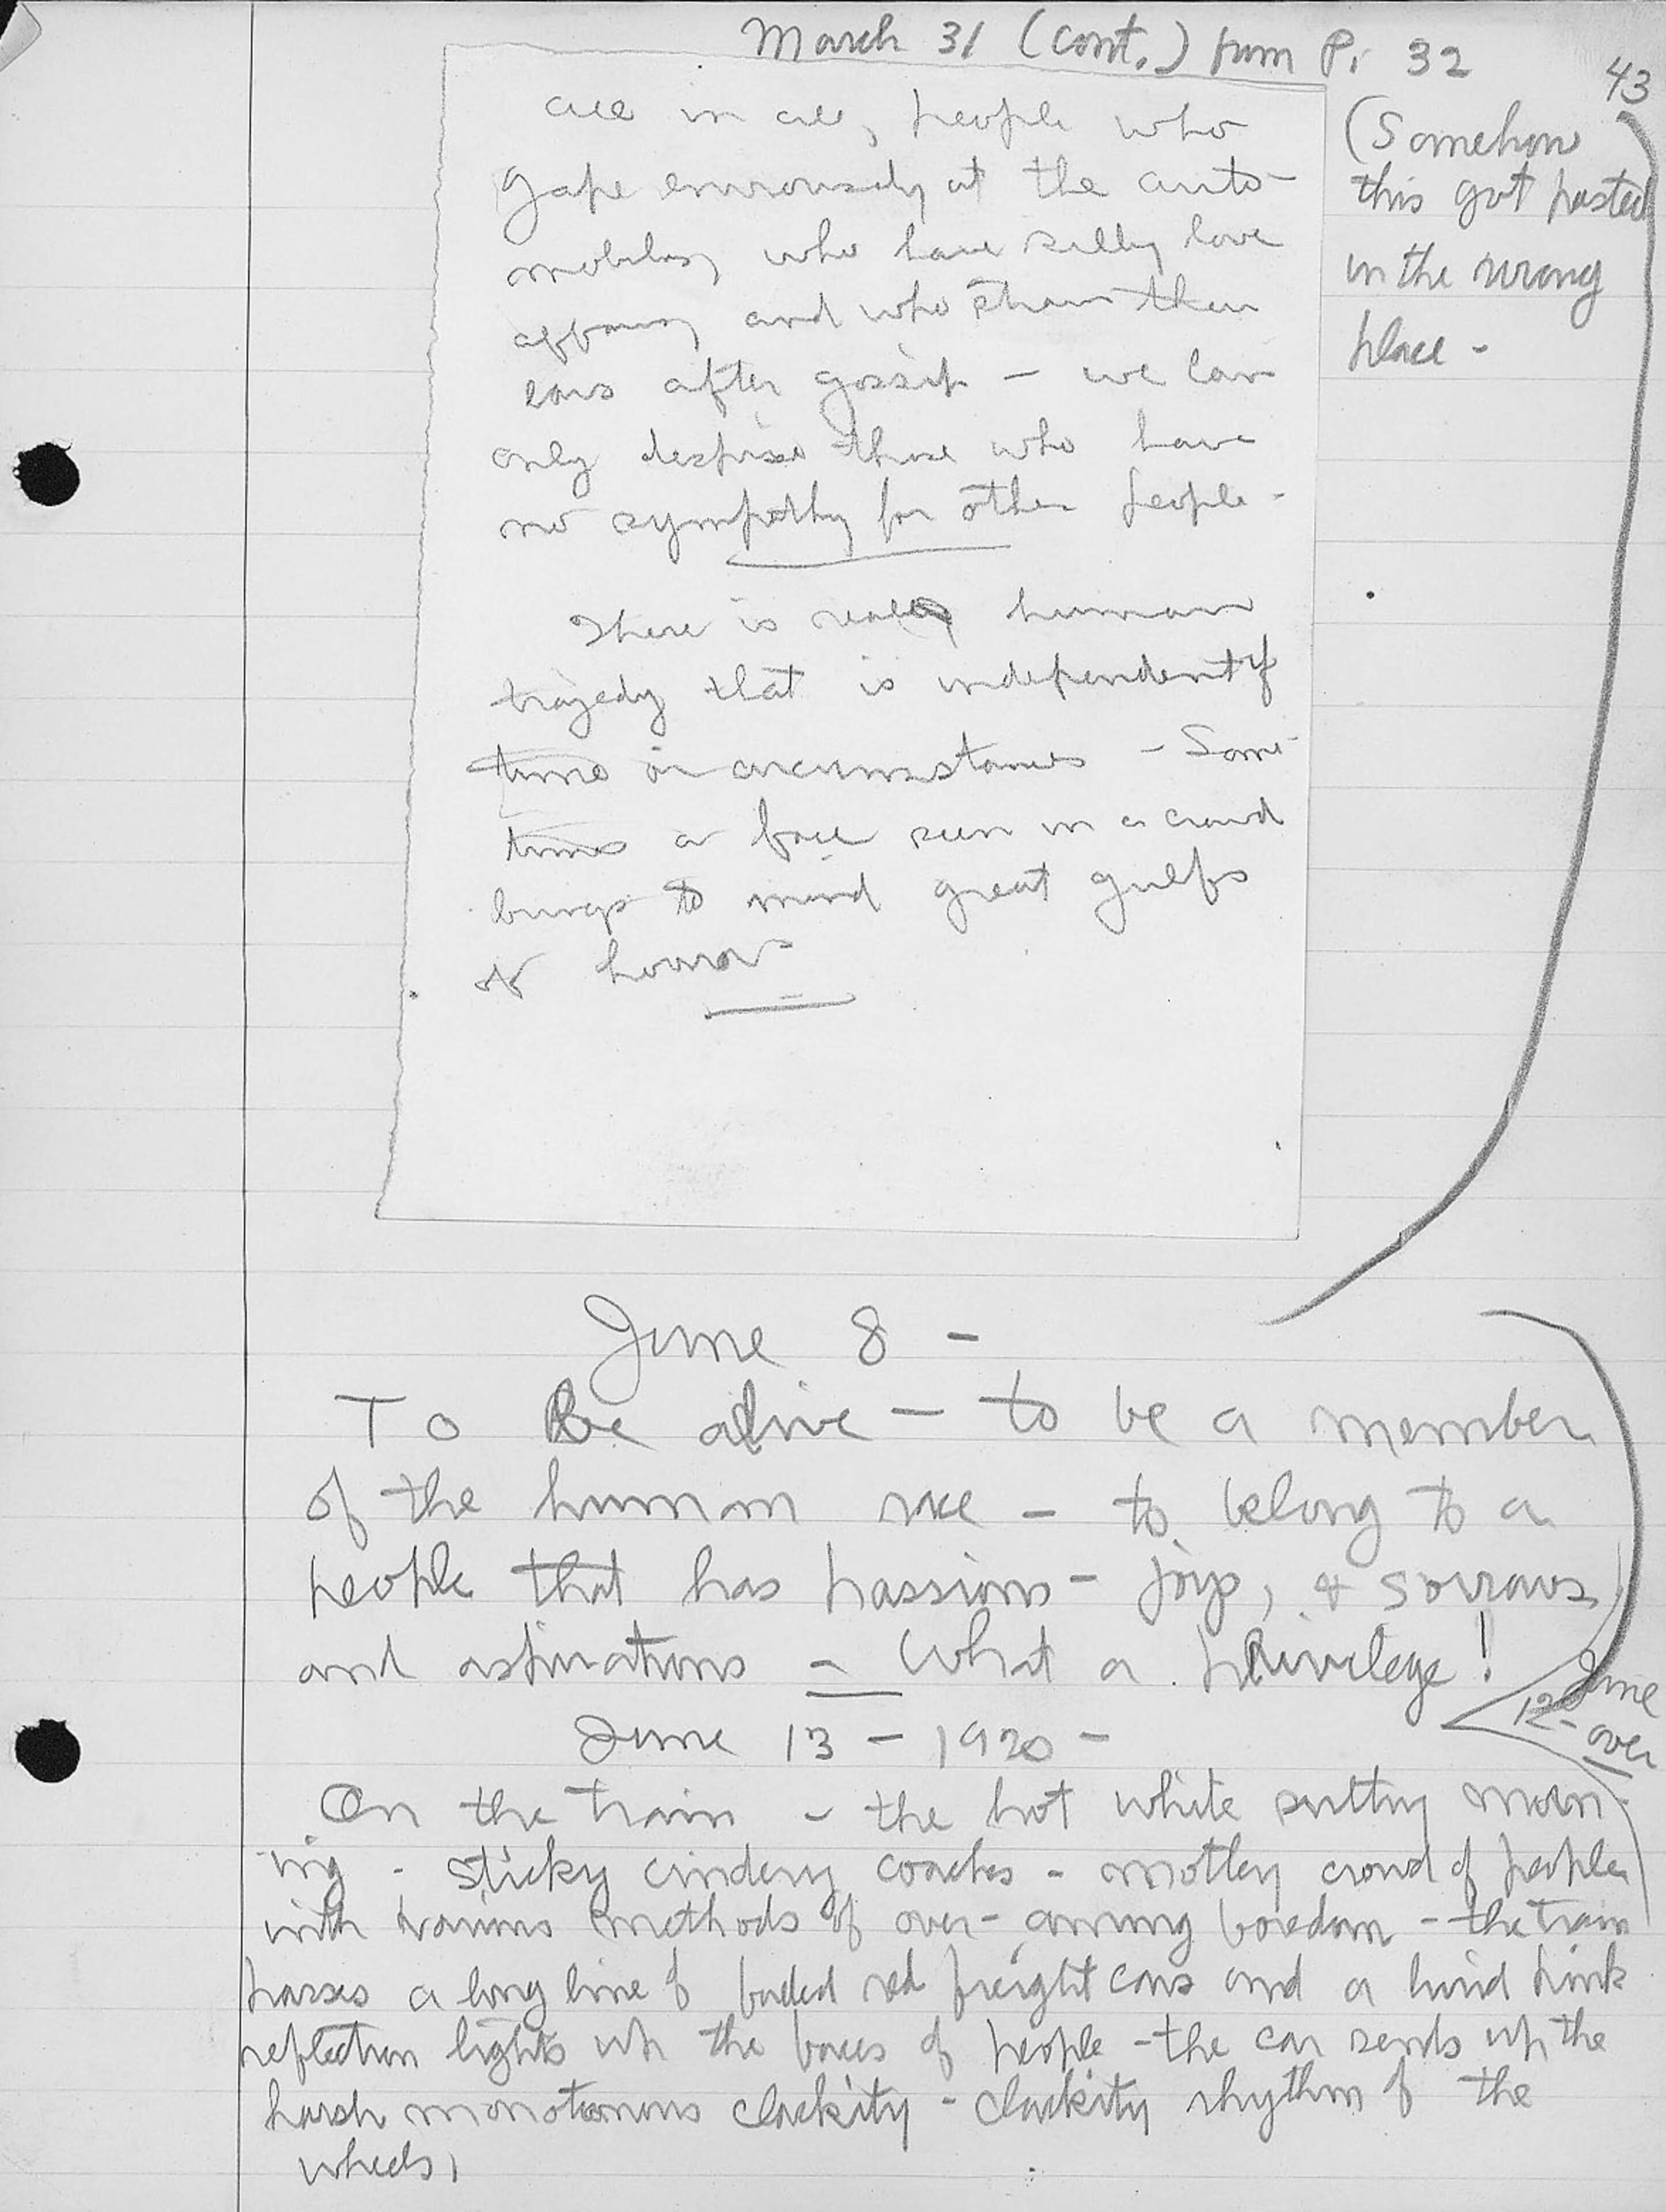 March 31 (cont.) from P. 32
43
(Somehow
this got pasted
in the wrong
place -
all in all, people who
gape enviously at the auto-
mobiles, who have silly love
affairs, and who strain their
ears after gossip - we can
only despise those who have
no sympathy for other people -
There is really human
tragedy that is independent of
time or circumstances - Some-
times a face seen in a crowd
brings to mind great gulfs
of horror -
June 8 -
To Be alive - to be a member
of the human race - to belong to a
people that has passions - joys, & sorrows,
and aspirations - What a privilege!
June
12 - over
June 13 - 1920 -
On the train - the hot white sultry morn-
ing - sticky cindery coaches - motley crowd of people
with various methods of over-coming boredom - the train
passes a long line of faded red freight cars and a lurid pink
reflection lights up the faces of people - the car sends up the
harsh monotonous clackity - clackity rhythm of the
wheels,